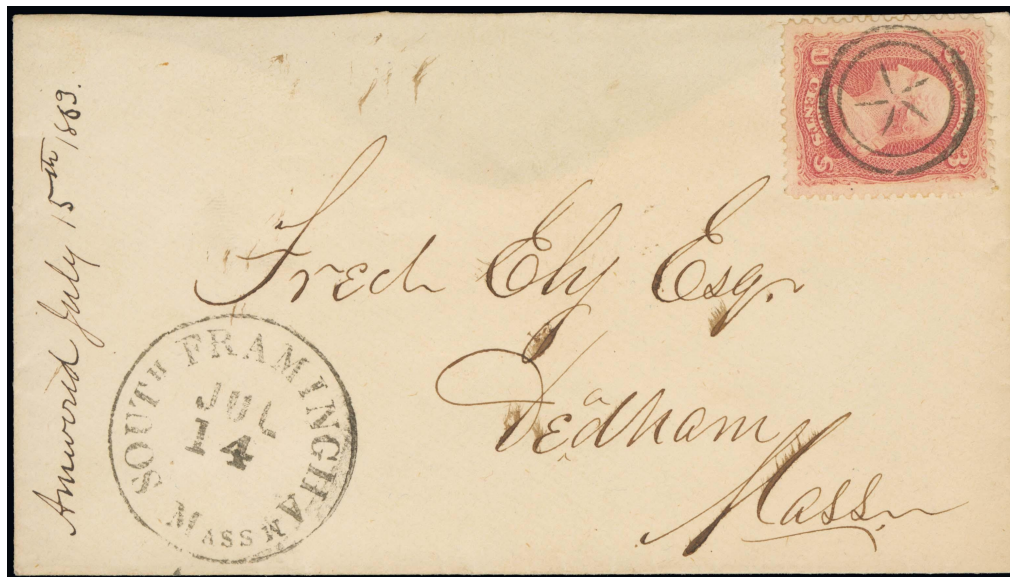 Answered July 15th 1863.
Fred Ely Esq.
Dedham
Mass
SOUTH FRAMINGHAM
JUL
14
MASS
U 3
CENTS
S 3